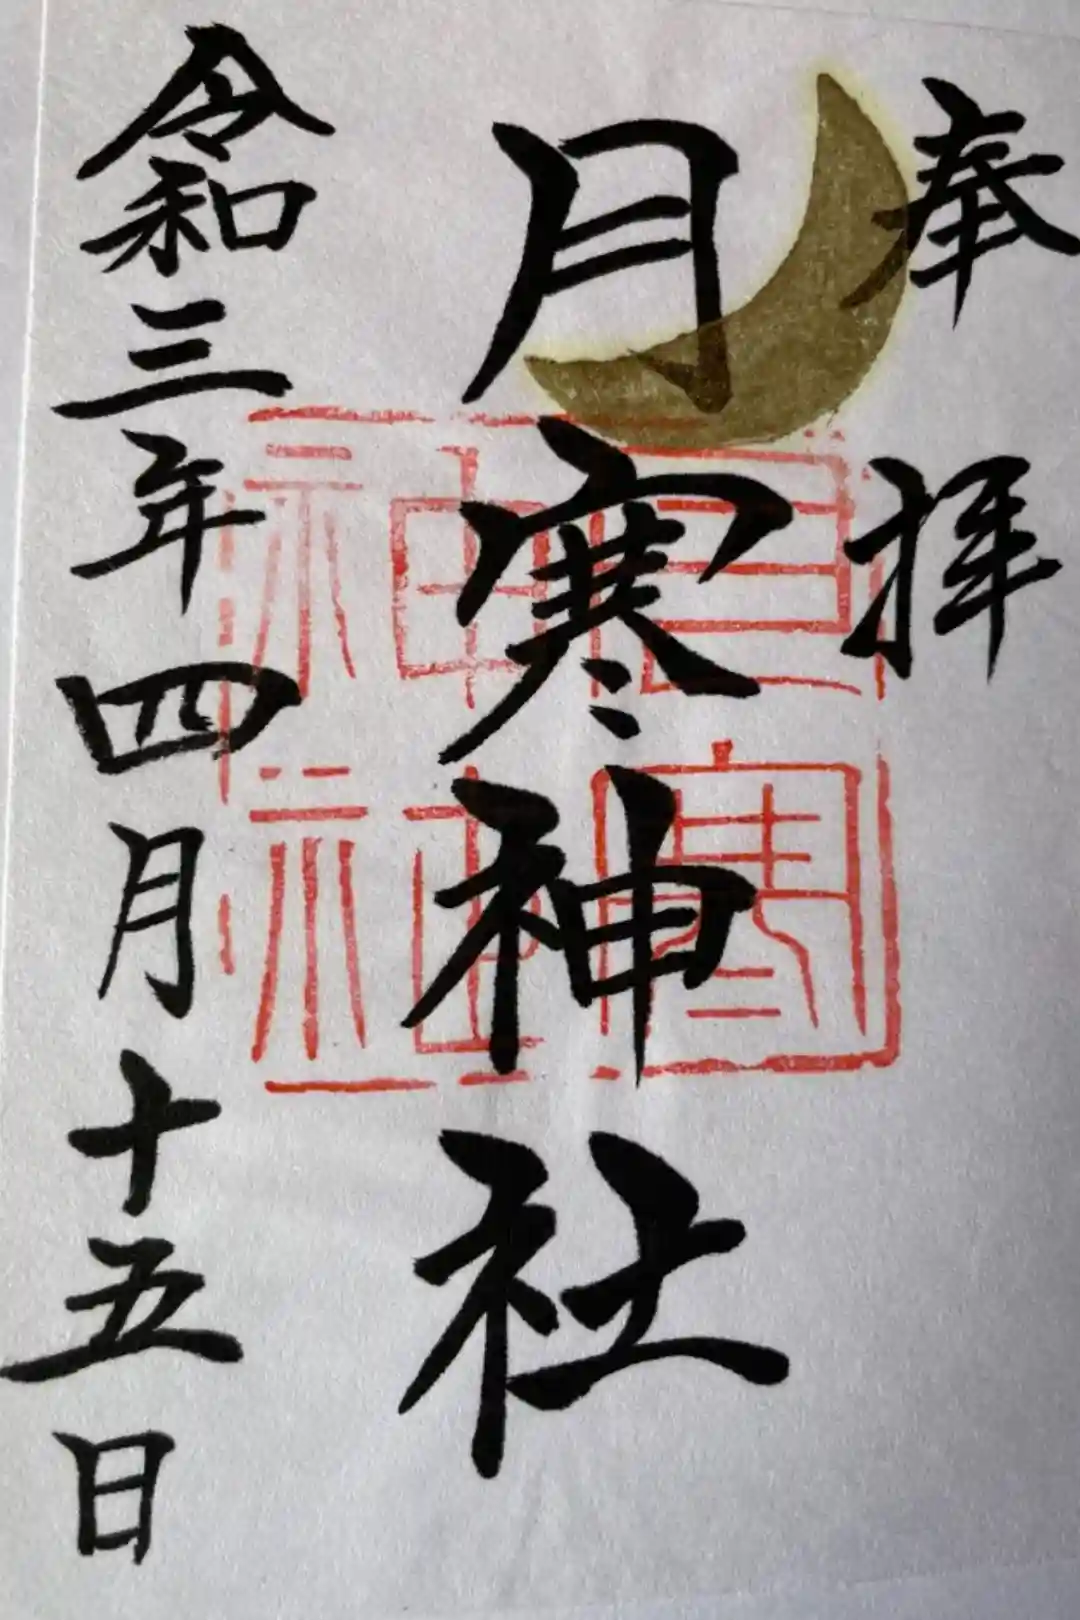 奉拝
月寒神社
令和三年四月十五日
月寒神社